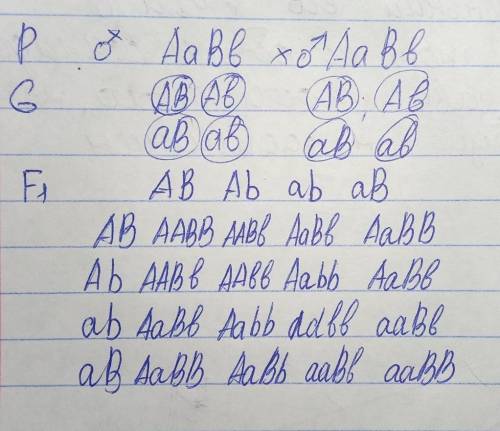 P ♂ AaBв × ♂ AaBв
G AB Aв AB, Aв
aB aв aB aв
F₁ AB Ab ab aB
AB AABB AABв AaBв AaBB
Ab AABв AAвв Aabb AaBв
ab AaBв Aabb aaвв aaBв
aB AaBB AaBb aaBв aaBB